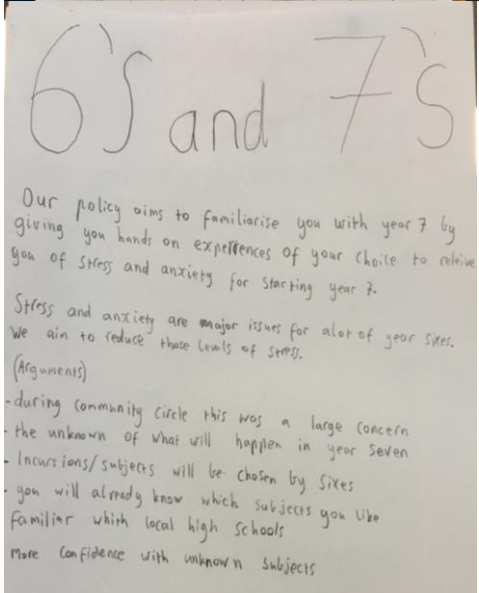 6's and 7's
Our policy aims to familiarise you with year 7 by
giving you hands on experiences of your choice to releive
you of stress and anxiety for starting year 7.
Stress and anxiety are major issues for alot of year sixes.
We aim to reduce those levels of stress.
(Arguments)
- during community circle this was a large concern
- the unknown of what will happen in year seven
- Incursions/subjects will be chosen by sixes
- you will already know which subjects you like
familiar whith local high schools
More confidence with unknown subjects